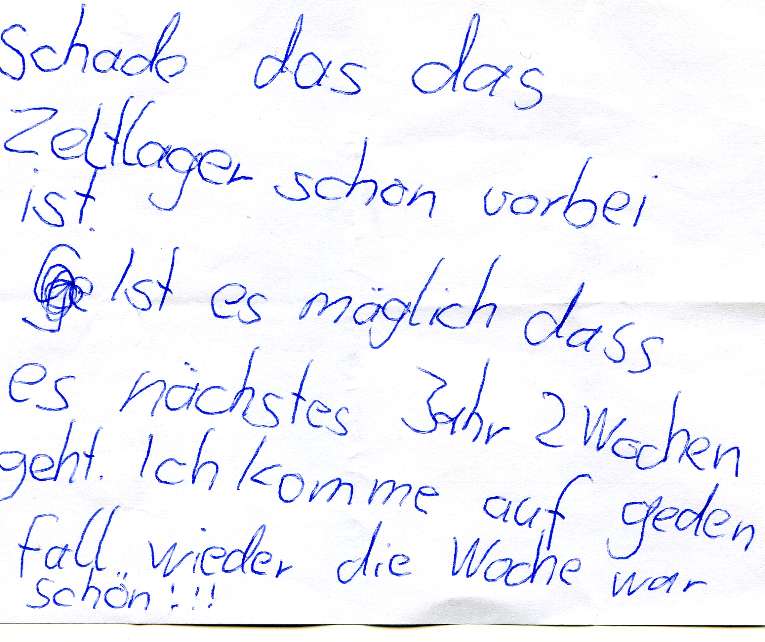 Schade das das
Zeltlager schon vorbei
ist.
Ist es möglich dass
es nächstes Jahr 2 Wochen
geht. Ich komme auf geden
fall wieder die Woche war
schön!!!